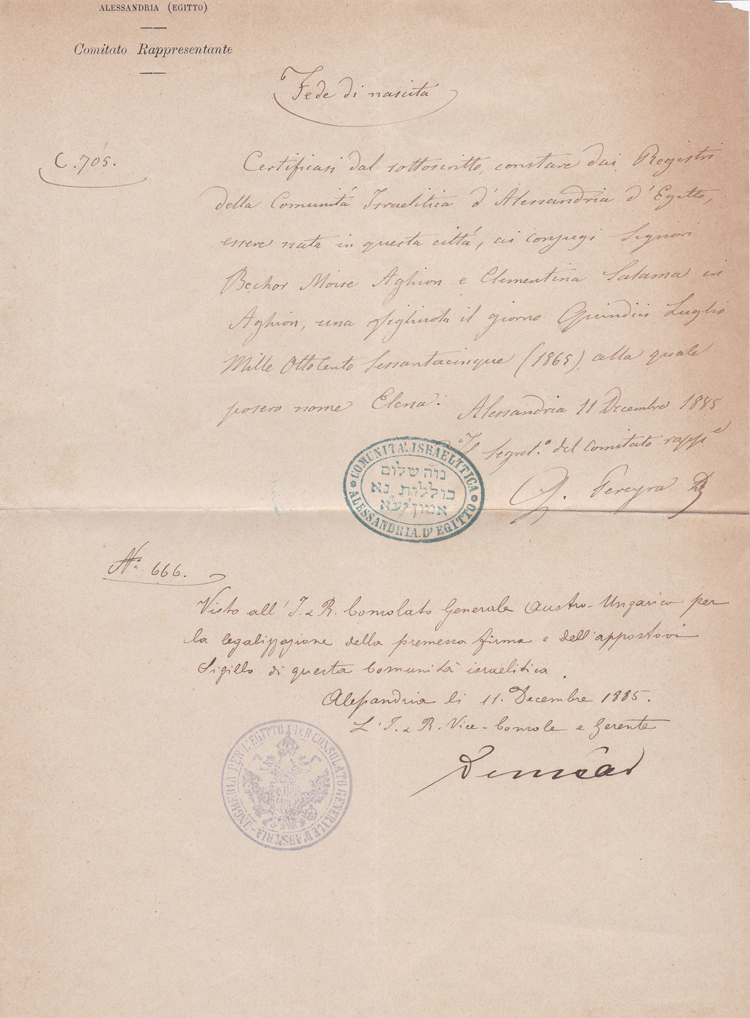 ALESSANDRIA (EGITTO)
Comitato Rappresentante
Fede di nascita
C. 705.
Certificasi dal sottoscritto, constare dai Registri
della Comunità Israelitica d'Alessandria d'Egitto,
essere nata in questa città, ai conjugi Signori
Bechor Moise Aghion e Clementina Salama in
Aghion, una figliuola il giorno Quindici Luglio
Mille Ottocento Sessantacinque (1865) alla quale
posero nome Elena.
Alessandria 11 Decembre 1885
Il Segret.o del comitato rapp.e
G. Pereyra
COMUNITÀ ISRAELITICA
נוה שלום
כוללות נא
אמון יע״א
ALESSANDRIA D'EGITTO
No. 666.
Visto all' I. & R. Consolato Generale Austro-Ungarico per
la legalizzazione della premessa firma e dell'appostovi
Sigillo di questa Comunità israelitica.
Alessandria li 11. Decembre 1885.
L' I. & R. Vice-Console e Gerente
CONSOLATO GENERALE D'AUSTRIA-INGHERIA PER L'EGITTO